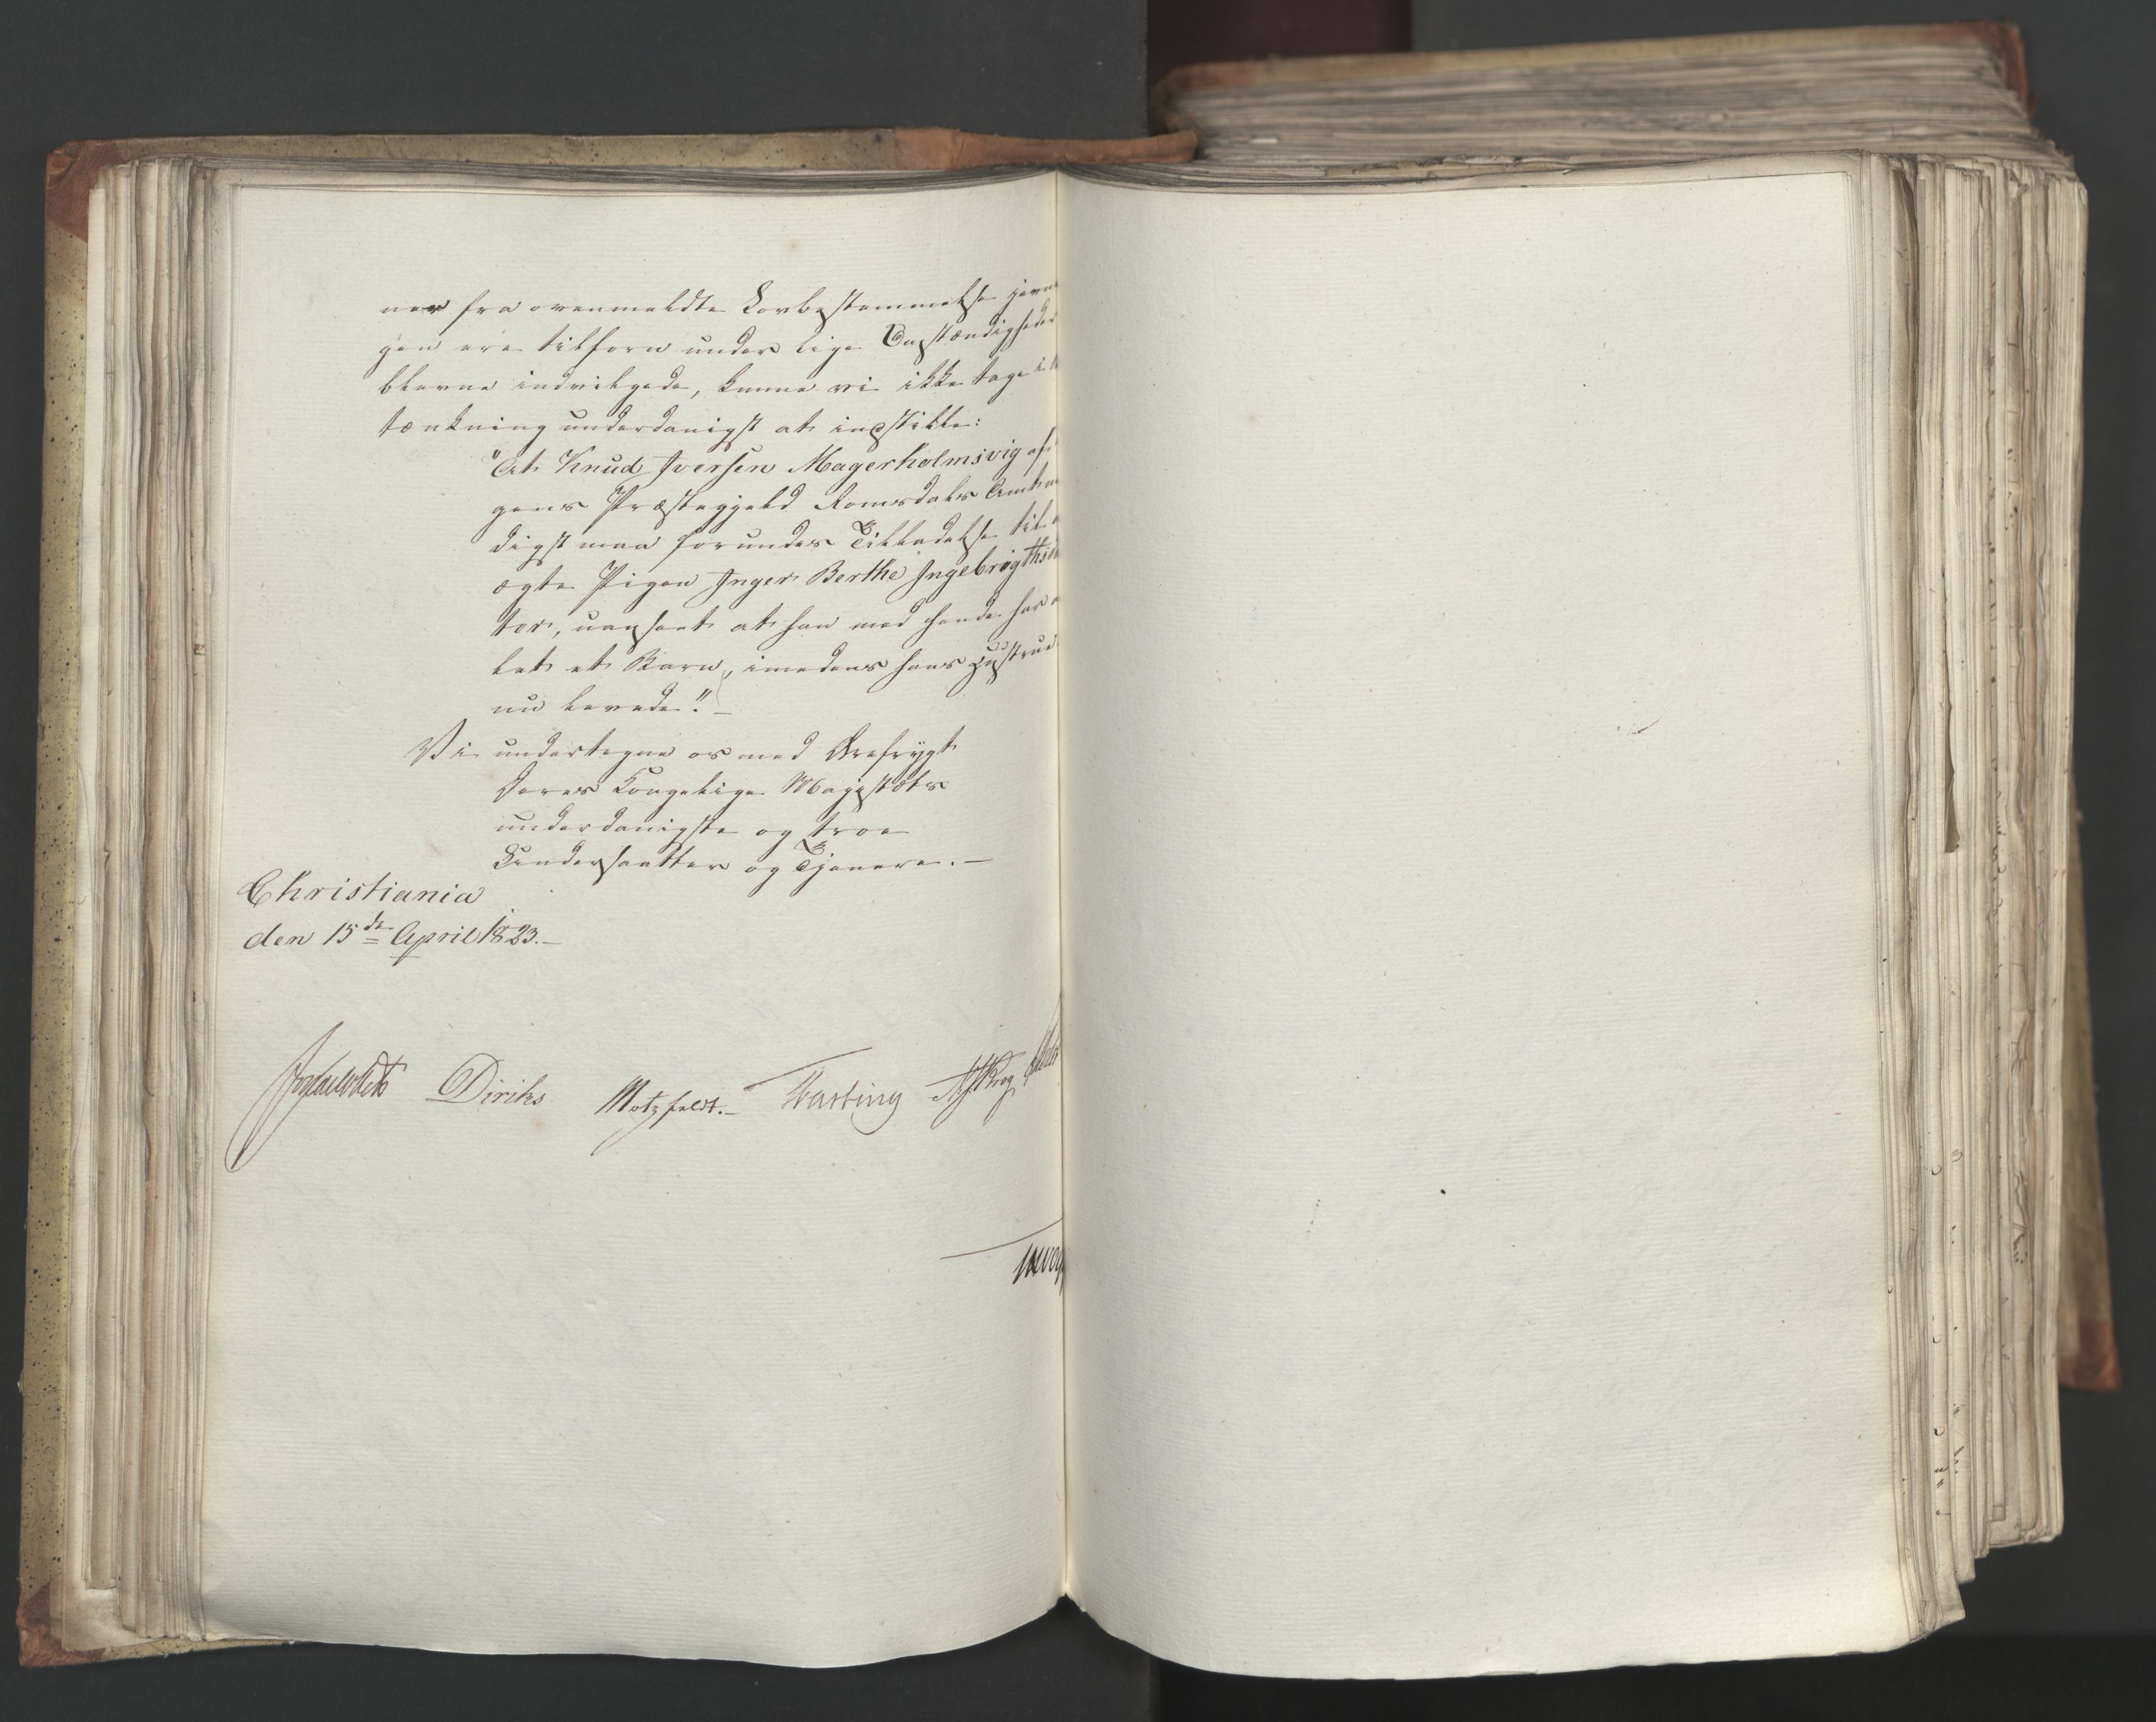 ner fra ovenmeldte Lovbestemmelse jevn
gen ere tilforn under lige Omstændigheder
blevne indvilgede, kunne vi ikke tage i
tænkning underdanigst at indstille:
"At Knud Iversen Magerholmsvig af
gens Præstegjeld Romsdals Amt n
digst maa forundes Tilladelse til
ægte Pigen Inger Berthe Ingebrigths
ter, uanseet at han med hende har a
let et Barn, imedens hans Hustrue
nu levede."
Vi undertegne os med Ærefrygt
Deres Kongelige Majestæts
underdanigste og troe
Undersaatter og Tjenere.
Christiania
den 15de April 1823.
Diriks Motzfeldt. Fasting Krog